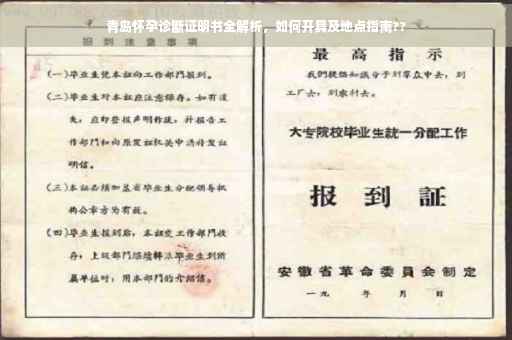 青岛怀孕诊断证明书全解析，如何开具及地点指南??
报到注意事项
(一)毕业生凭本证向工作部门报到。
(二)毕业生对本证应注意保存。如有遗
失，应即登报声明作废，并报告工
作部门和向原发证机关申请补发证
明信。
(三)本证必须加盖省毕业生分配领导机
构公章方为有效。
(四)毕业生报到后，本证交工作部门收
存，上级部门继续转派毕业生到所
属单位时，用本部门的介绍信。
最高指示
我们提倡知识分子到群众中去，到
工厂去，到农村去。
大专院校毕业生统一分配工作
报到証
安徽省革命委員会制定
一九 年 月 日